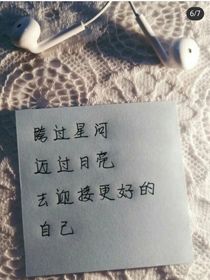 6/7
跨过星河
迈过月亮
去迎接更好的
自己